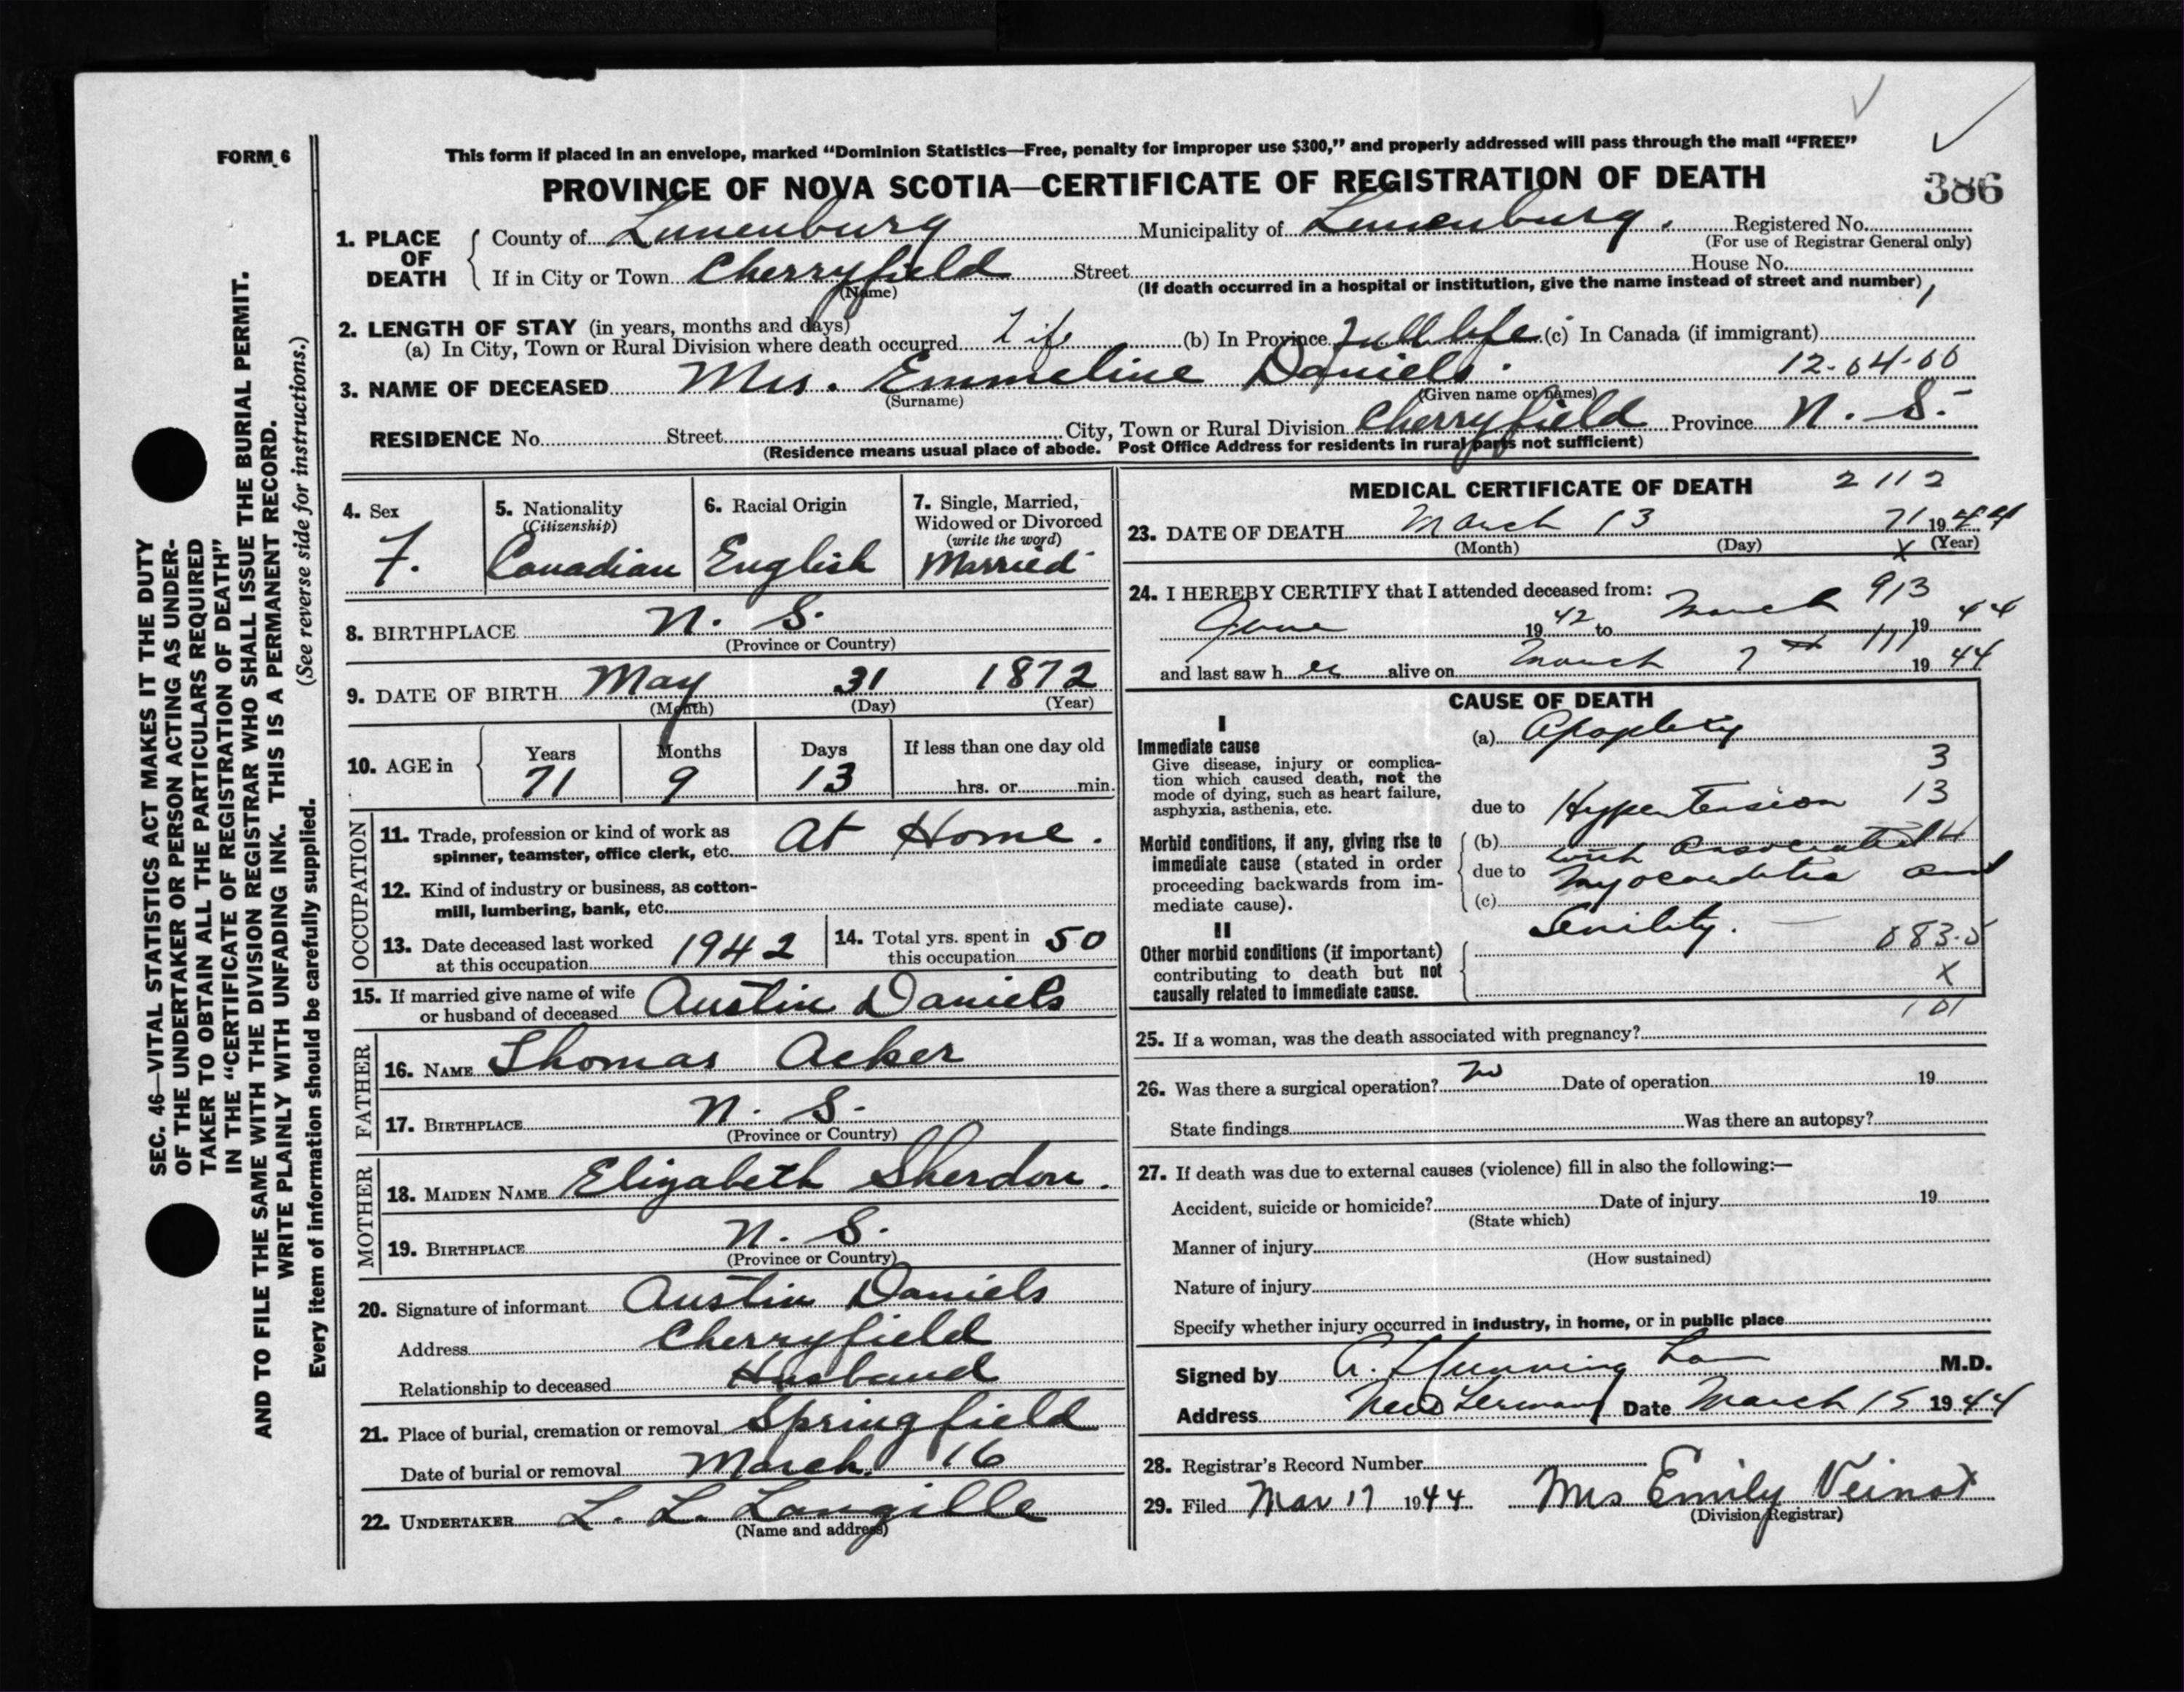 FORM 6
This form if placed in an envelope, marked “Dominion Statistics—Free, penalty for improper use $300,” and properly addressed will pass through the mail “FREE”
PROVINCE OF NOVA SCOTIA—CERTIFICATE OF REGISTRATION OF DEATH
386
1. PLACE OF DEATH
County of Lunenburg Municipality of Lunenburg. Registered No.
(For use of Registrar General only)
If in City or Town Cherryfield Street House No.
(Name) (If death occurred in a hospital or institution, give the name instead of street and number)
2. LENGTH OF STAY (in years, months and days)
(a) In City, Town or Rural Division where death occurred Life (b) In Province Full life (c) In Canada (if immigrant)
3. NAME OF DECEASED Mrs. Emmeline Daniels. 12-04-00
(Surname) (Given name or names)
RESIDENCE No. Street City, Town or Rural Division Cherryfield Province N. S.
(Residence means usual place of abode. Post Office Address for residents in rural parts not sufficient)
4. Sex
F.
5. Nationality
(Citizenship)
Canadian
6. Racial Origin
English
7. Single, Married,
Widowed or Divorced
(write the word)
Married
8. BIRTHPLACE N. S.
(Province or Country)
9. DATE OF BIRTH May 31 1872
(Month) (Day) (Year)
10. AGE in
Years Months Days If less than one day old
71 9 13 hrs. or min.
OCCUPATION
11. Trade, profession or kind of work as
spinner, teamster, office clerk, etc. At Home.
12. Kind of industry or business, as cotton-
mill, lumbering, bank, etc.
13. Date deceased last worked
at this occupation 1942
14. Total yrs. spent in
this occupation 50
15. If married give name of wife
or husband of deceased Austin Daniels
FATHER
16. NAME Thomas Acker
17. BIRTHPLACE N. S.
(Province or Country)
MOTHER
18. MAIDEN NAME Elizabeth Sherdon.
19. BIRTHPLACE N. S.
(Province or Country)
20. Signature of informant Austin Daniels
Address Cherryfield
Relationship to deceased Husband
21. Place of burial, cremation or removal Springfield
Date of burial or removal March 16
22. UNDERTAKER L. L. Langille
(Name and address)
MEDICAL CERTIFICATE OF DEATH 2112
23. DATE OF DEATH March 13 71 1944
(Month) (Day) X (Year)
24. I HEREBY CERTIFY that I attended deceased from: 913
June 1942 to March 1944
and last saw her alive on March 7 1944
CAUSE OF DEATH
I
Immediate cause
Give disease, injury or complica-
tion which caused death, not the
mode of dying, such as heart failure,
asphyxia, asthenia, etc.
(a) Apoplexy
3
due to Hypertension 13
Morbid conditions, if any, giving rise to
immediate cause (stated in order
proceeding backwards from im-
mediate cause).
(b) with associated
due to myocarditis and
(c) Senility.
II
Other morbid conditions (if important)
contributing to death but not
causally related to immediate cause.
083.5
X
101
25. If a woman, was the death associated with pregnancy?
26. Was there a surgical operation? No Date of operation 19
State findings Was there an autopsy?
27. If death was due to external causes (violence) fill in also the following:—
Accident, suicide or homicide? Date of injury 19
(State which)
Manner of injury
(How sustained)
Nature of injury
Specify whether injury occurred in industry, in home, or in public place
Signed by M.D.
Address New Germany Date March 15 1944
28. Registrar's Record Number
29. Filed Mar 17 1944 Mrs Emily Veinot
(Division Registrar)
SEC. 46—VITAL STATISTICS ACT MAKES IT THE DUTY
OF THE UNDERTAKER OR PERSON ACTING AS UNDER-
TAKER TO OBTAIN ALL THE PARTICULARS REQUIRED
IN THE “CERTIFICATE OF REGISTRATION OF DEATH”
AND TO FILE THE SAME WITH THE DIVISION REGISTRAR WHO SHALL ISSUE THE BURIAL PERMIT.
WRITE PLAINLY WITH UNFADING INK. THIS IS A PERMANENT RECORD.
(See reverse side for instructions.)
Every item of information should be carefully supplied.